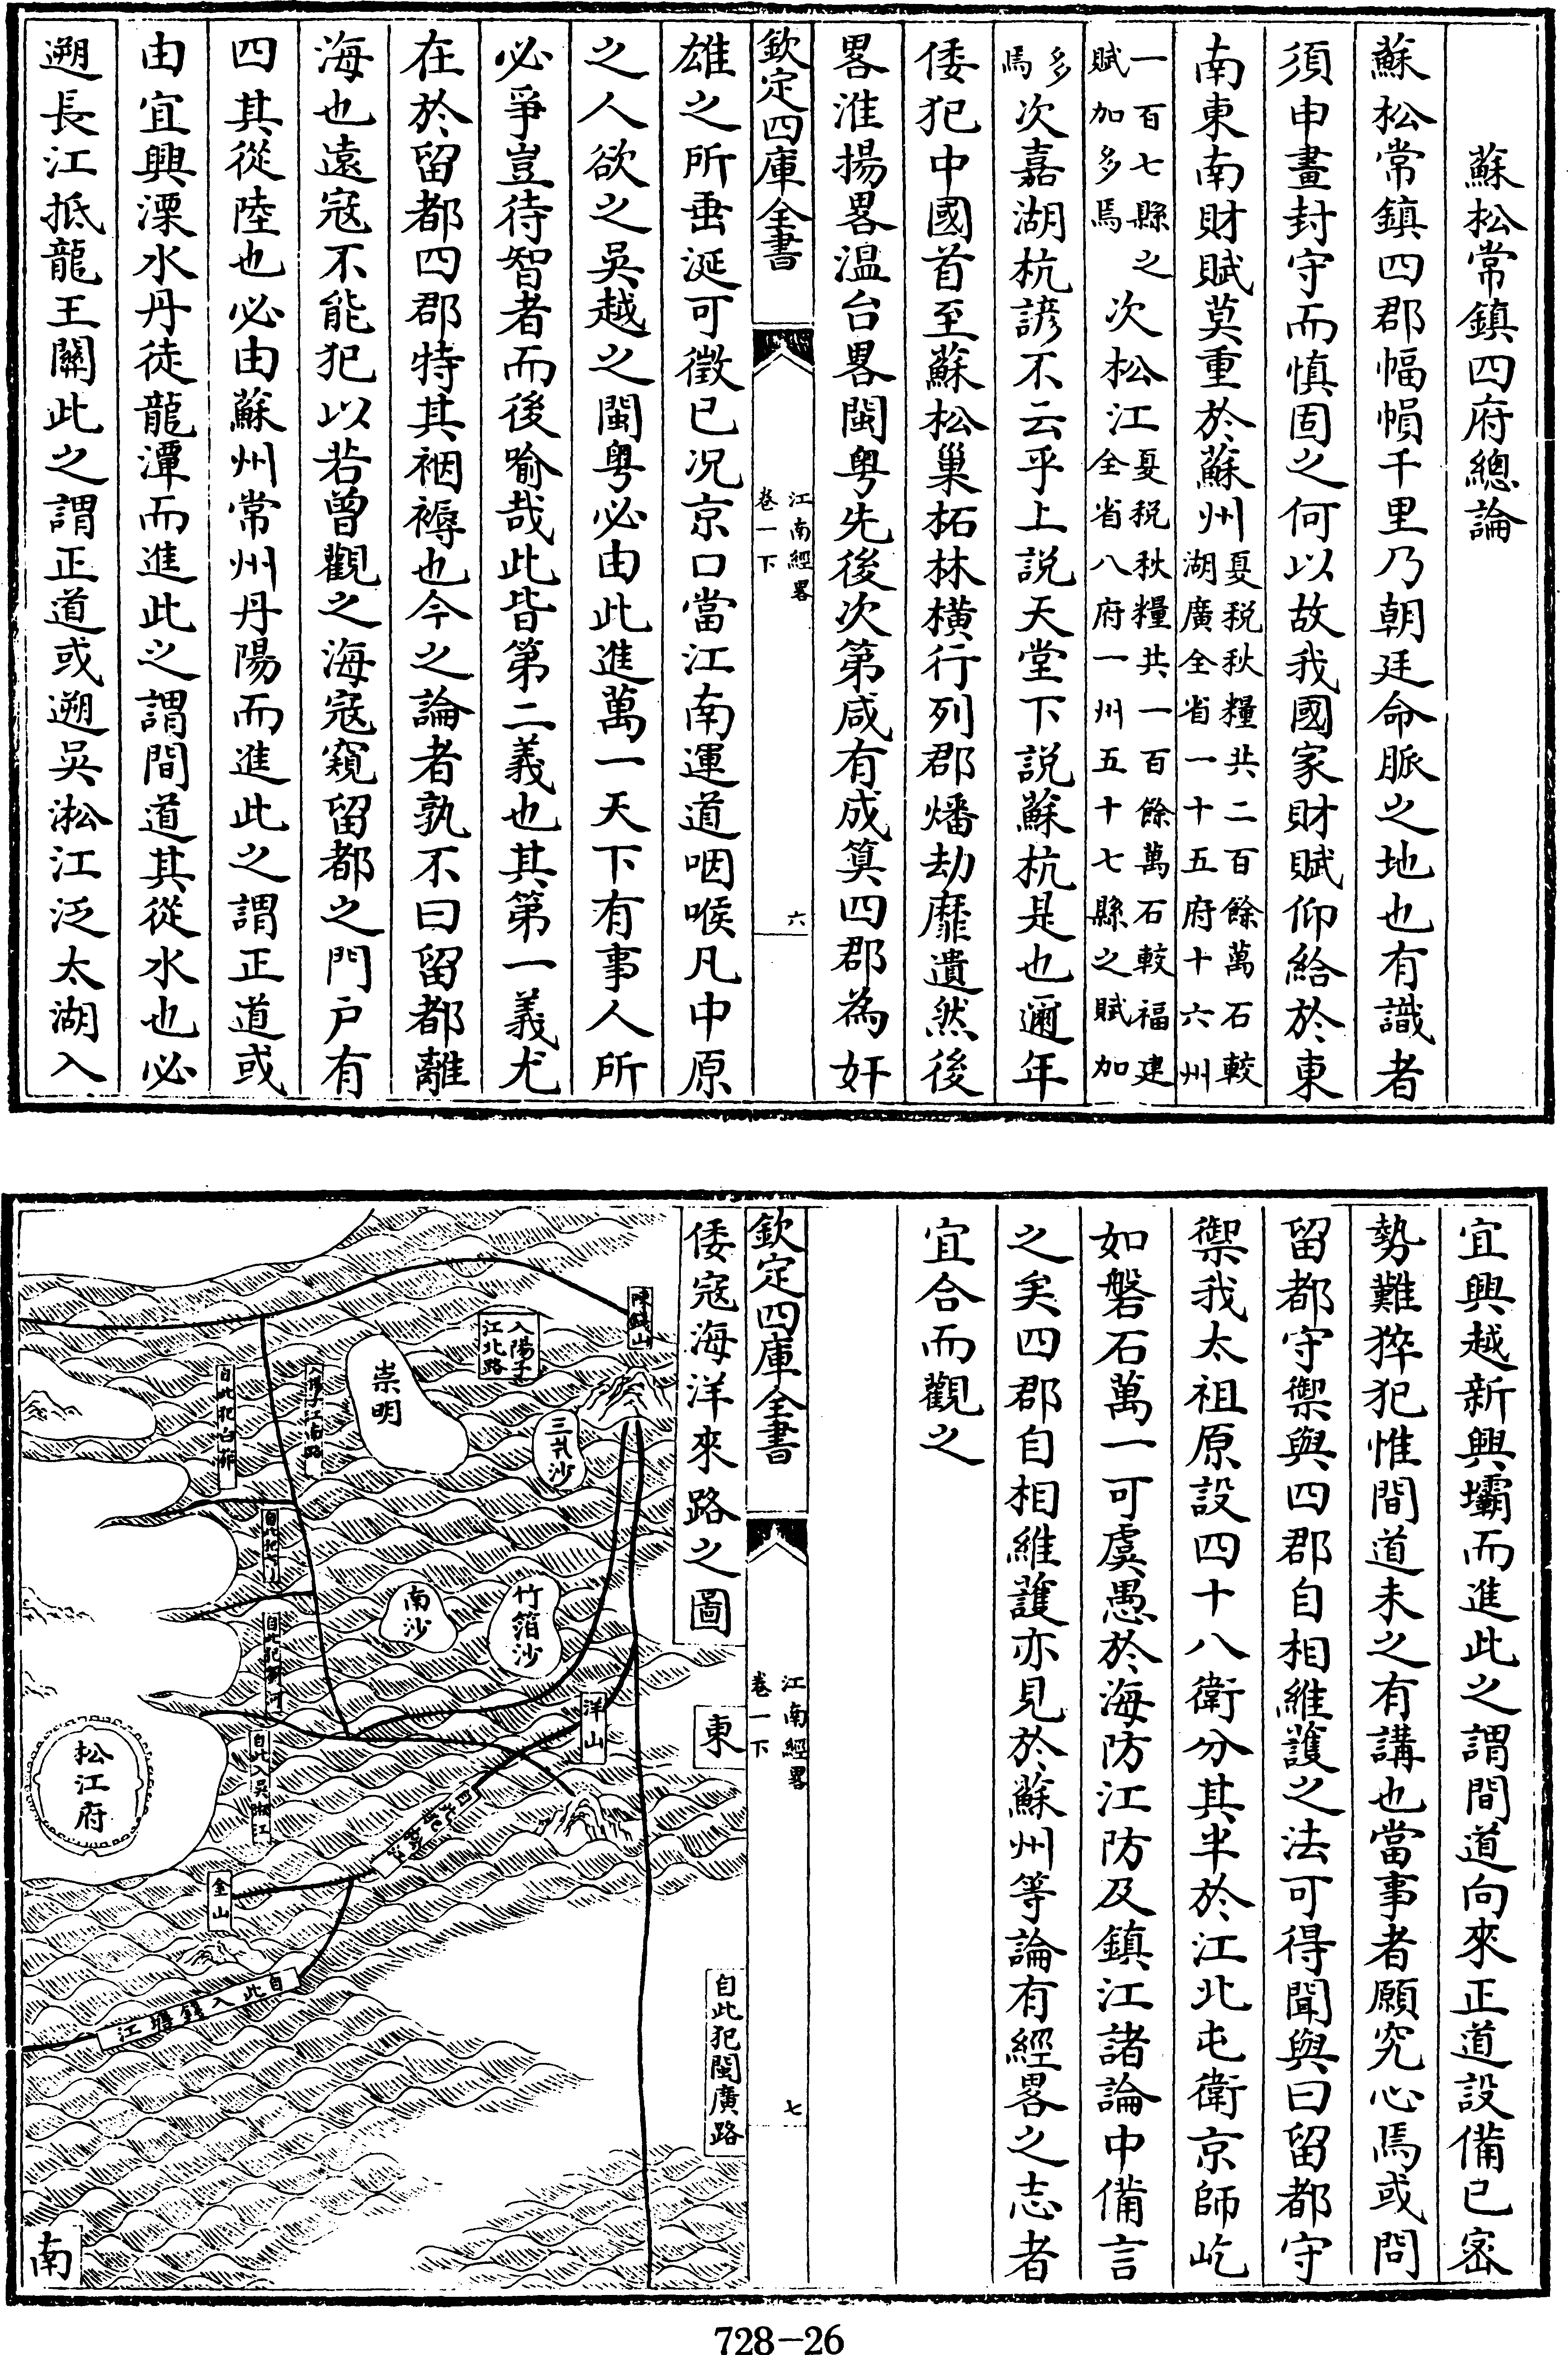 蘇松常鎮四府總論
蘇松常鎮四郡幅幀千里乃朝廷命脈之地也有識者
須申畫封守而慎固之何以故我國家財賦仰給於東
南東南財賦莫重於蘇州夏税秋糧共二百餘萬石較湖廣全省一十五府十六州
一百七縣之賦加多焉次松江夏税秋糧共一百餘萬石較福建全省八府一州五十七縣之賦加
多焉次嘉湖杭諺不云乎上説天堂下説蘇杭是也邇年
倭犯中國首至蘇松巢柘林横行列郡燔劫靡遺然後
畧淮揚畧温台畧閩粤先後次第咸有成筭四郡為奸
欽定四庫全書
江南經畧
卷一下
六
雄之所垂涎可徵已况京口當江南運道咽喉凡中原
之人欲之吳越之閩粤必由此進萬一天下有事人所
必爭豈待智者而後喻哉此皆第二義也其第一義尤
在於留都四郡特其裀褥也今之論者孰不曰留都離
海也遠寇不能犯以若曽觀之海寇窺留都之門户有
四其從陸也必由蘇州常州丹陽而進此之謂正道或
由宜興溧水丹徒龍潭而進此之謂間道其從水也必
遡長江抵龍王關此之謂正道或遡吳淞江泛太湖入
宜興越新興壩而進此之謂間道向來正道設備已宻
勢難猝犯惟間道未之有講也當事者願究心焉或問
留都守禦與四郡自相維護之法可得聞與曰留都守
禦我太祖原設四十八衛分其半於江北屯衛京師屹
如磐石萬一可虞愚於海防江防及鎮江諸論中備言
之矣四郡自相維護亦見於蘇州等論有經畧之志者
宜合而觀之
欽定四庫全書
江南經畧
卷一下
七
倭寇海洋來路之圖
東
自此犯閩廣路
陳錢山
入陽子江北路
三爿沙
崇明
入陽子江南路
自此犯白茆
竹箔沙
南沙
自此犯劉河
洋山
自此入吳淞江
松江府
金山
自此入錢塘江
南
728-26